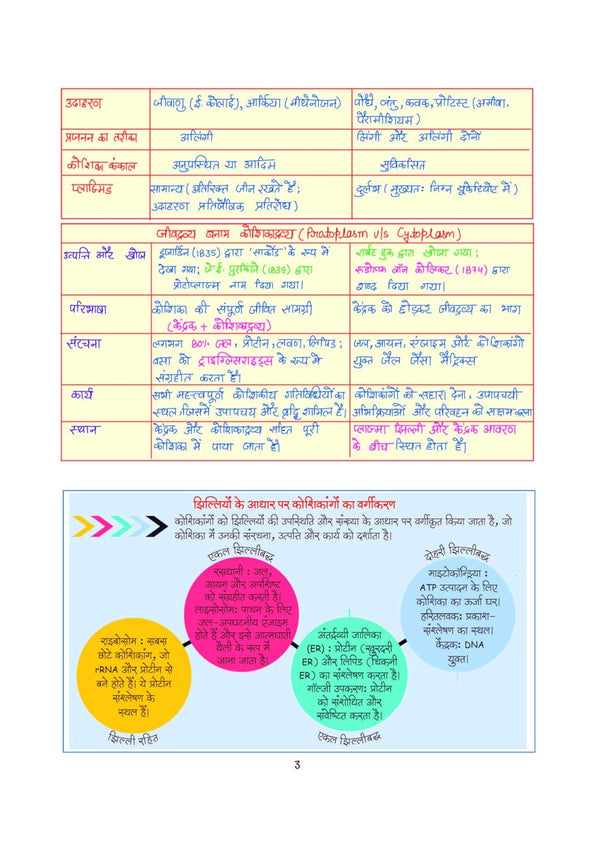 उदाहरण जीवाणु (ई. कोलाई), आर्किया (मीथेनोजन) पौधे, जंतु, कवक, प्रोटिस्ट (अमीबा,
पैरामीशियम)
प्रजनन का तरीका अलिंगी लिंगी और अलिंगी दोनों
कोशिका कंकाल अनुपस्थित या आदिम सुविकसित
प्लाज्मिड सामान्य (अतिरिक्त जीन रखते हैं; दुर्लभ (मुख्यतः निम्न यूकैरियोट में)
उदाहरण प्रतिजैविक प्रतिरोध)
जीवद्रव्य बनाम कोशिकाद्रव्य (Protoplasm v/s Cytoplasm)
उत्पत्ति और खोज डुजार्डिन (1835) द्वारा 'सार्कोड' के रूप में रॉबर्ट हुक द्वारा खोजा गया;
देखा गया; जे.ई. पुरकिंजे (1839) द्वारा रुडोल्फ वॉन कोलिकर (1874) द्वारा
प्रोटोप्लाज्म नाम दिया गया। शब्द दिया गया।
परिभाषा कोशिका की संपूर्ण जीवित सामग्री केंद्रक को छोड़कर जीवद्रव्य का भाग
(केंद्रक + कोशिकाद्रव्य)
संरचना लगभग 80% जल, प्रोटीन, लवण, लिपिड; जल, आयन, एंजाइम और कोशिकांगों
वसा को ट्राइग्लिसराइड्स के रूप में युक्त जैल जैसा मैट्रिक्स
संग्रहीत करता है।
कार्य सभी महत्त्वपूर्ण कोशिकीय गतिविधियों का कोशिकांगों को सहारा देना, उपापचयी
स्थल, जिसमें उपापचय और वृद्धि शामिल हैं। अभिक्रियाओं और परिवहन को सक्षम करना
स्थान केंद्रक और कोशिकाद्रव्य सहित पूरी प्लाज्मा झिल्ली और केंद्रक आवरण
कोशिका में पाया जाता है। के बीच स्थित होता है।
झिल्लियों के आधार पर कोशिकांगों का वर्गीकरण
कोशिकांगों को झिल्लियों की उपस्थिति और संख्या के आधार पर वर्गीकृत किया जाता है, जो
कोशिका में उनकी संरचना, उत्पत्ति और कार्य को दर्शाता है।
राइबोसोम: सबसे
छोटे कोशिकांग, जो
rRNA और प्रोटीन से
बने होते हैं। ये प्रोटीन
संश्लेषण के
स्थल हैं।
झिल्ली रहित
एकल झिल्लीबद्ध
रसधानी: जल,
आयन और अपशिष्ट
को संग्रहीत करती है।
लाइसोसोम: पाचन के लिए
जल-अपघटनीय एंजाइम
होते हैं और इसे आत्मघाती
थैली के रूप में
जाना जाता है।
अंतर्द्रव्यी जालिका
(ER): प्रोटीन (खुरदरी
ER) और लिपिड (चिकनी
ER) का संश्लेषण करता है।
गॉल्जी उपकरण: प्रोटीन
को संशोधित और
संवेष्टित करता है।
एकल झिल्लीबद्ध
दोहरी झिल्लीबद्ध
माइटोकॉन्ड्रिया:
ATP उत्पादन के लिए
कोशिका का ऊर्जा घर।
हरितलवक: प्रकाश-
संश्लेषण का स्थल।
केंद्रक: DNA
युक्त।
3